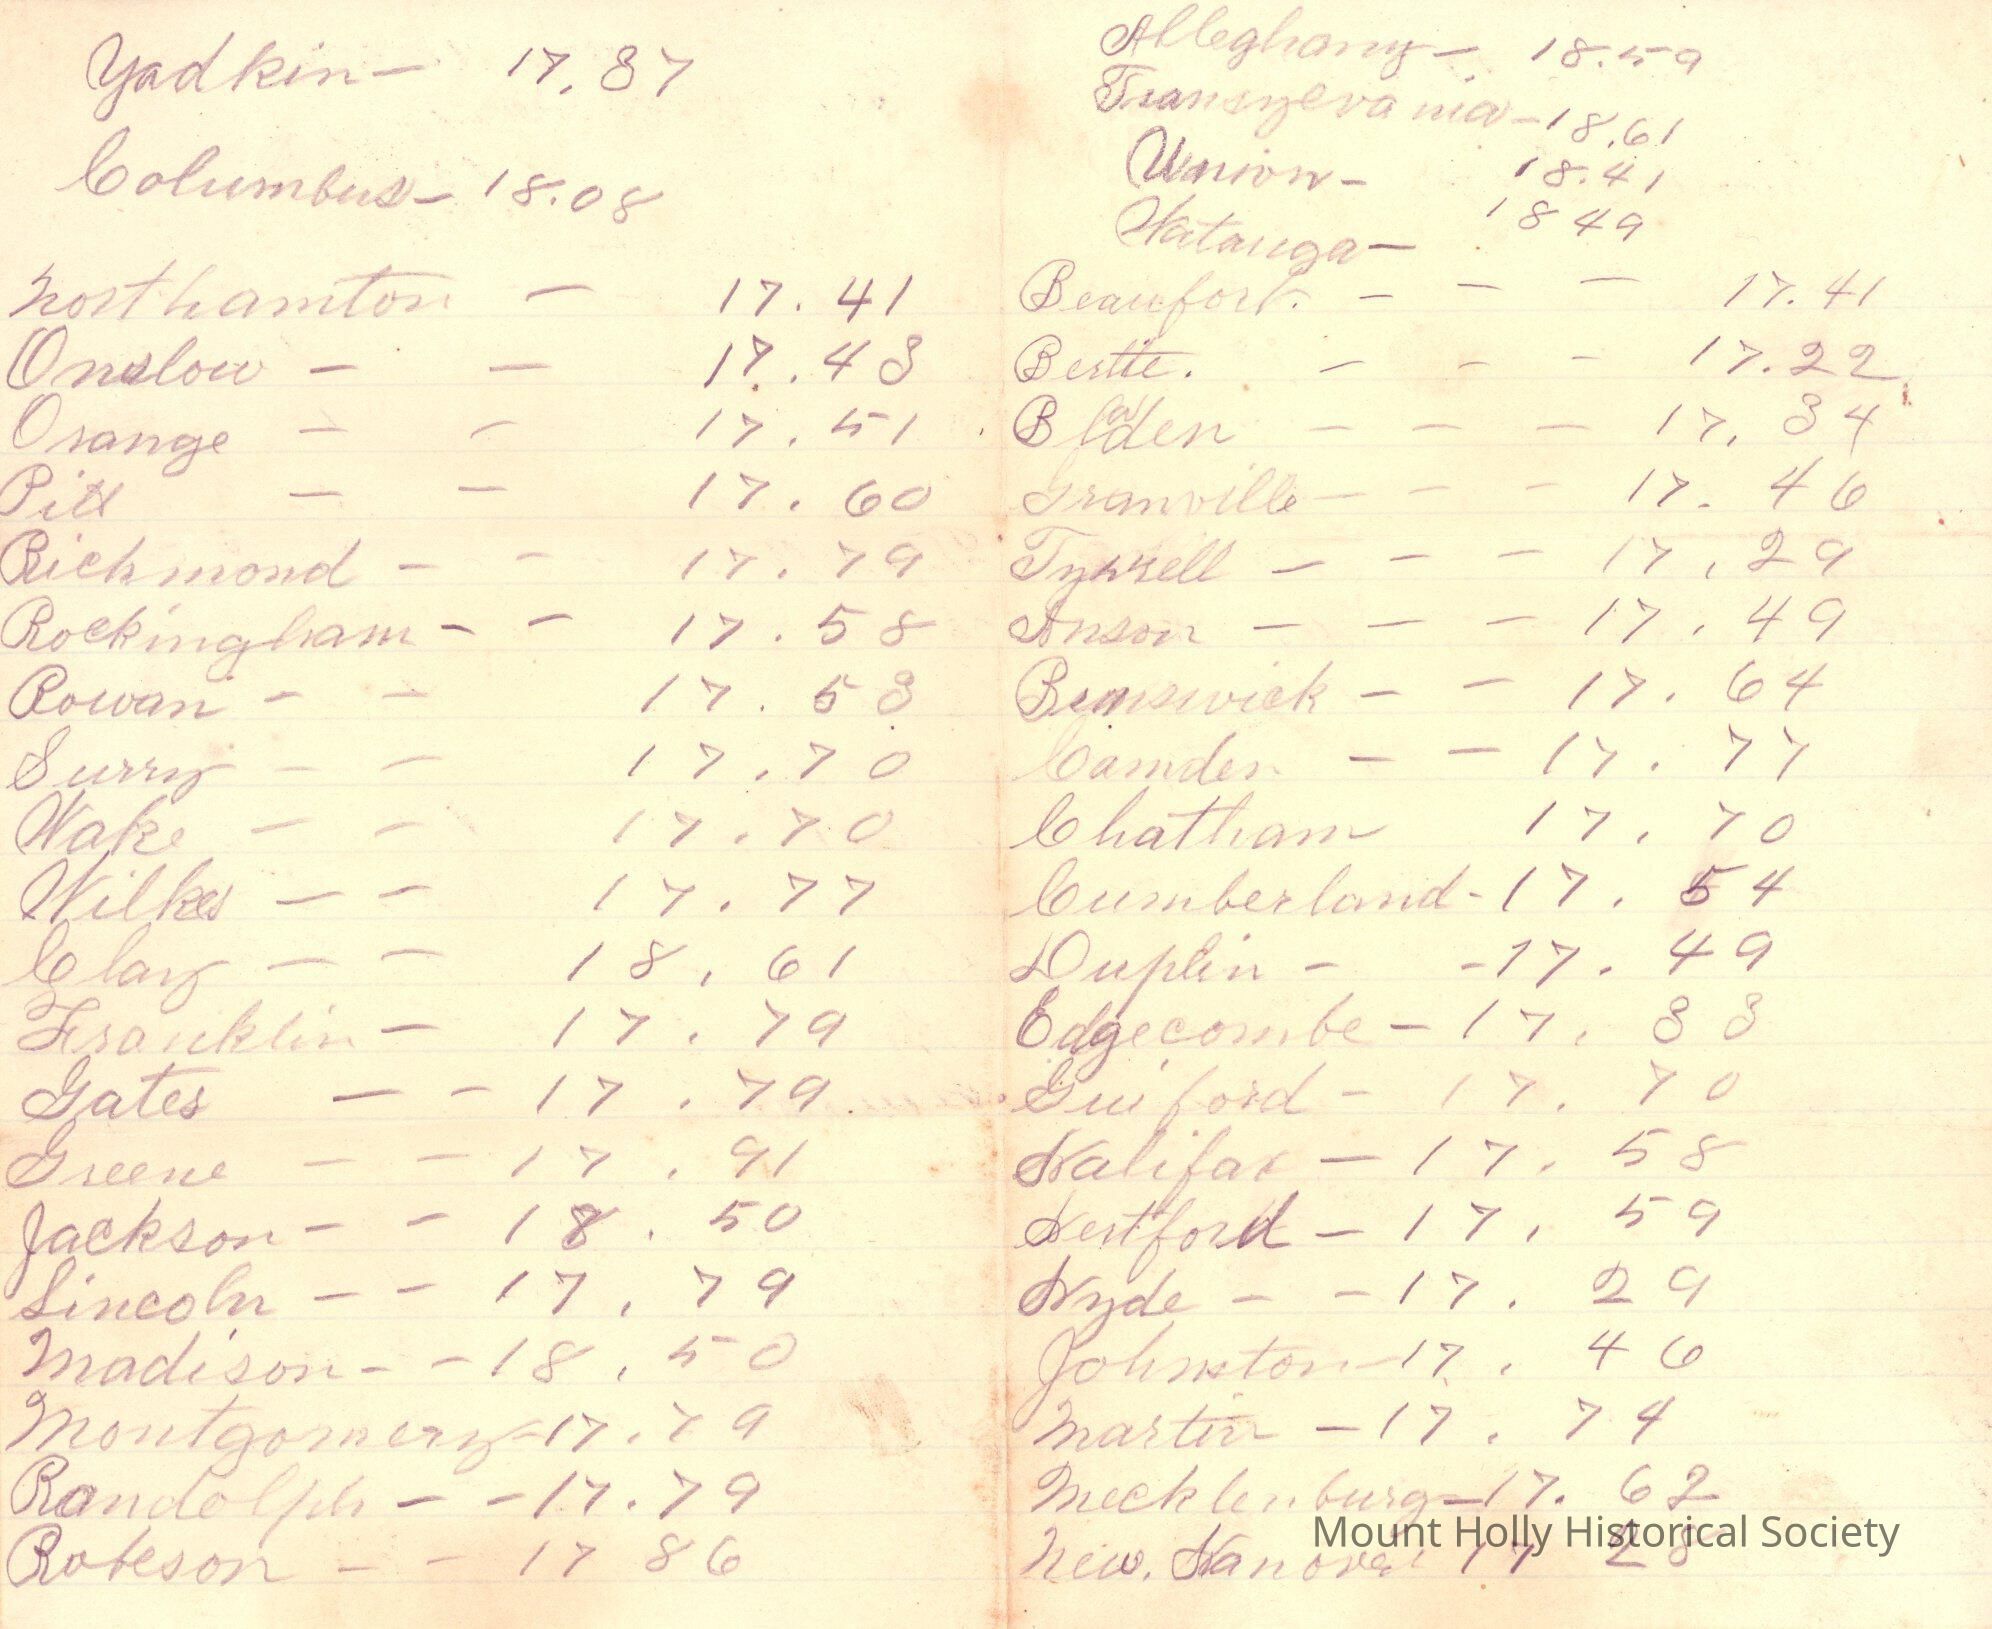 Yadkin - 17.37
Columbus - 18.08
Northamton - 17.41
Onslow - - 17.43
Orange - - 17.51
Pitt - - 17.60
Richmond - - 17.79
Rockingham - - 17.58
Rowan - - 17.53
Surry - - 17.70
Wake - - 17.70
Wilkes - - 17.77
Clay - - 18.61
Franklin - 17.79
Gates - - 17.79
Greene - - 17.91
Jackson - - 18.50
Lincoln - - 17.79
Madison - - 18.50
Montgomery - 17.79
Randolph - - 17.79
Robeson - - 17 86
Alleghany - 18.59
Transylvania - 18.61
Union - 18.41
Watauga - 1849
Beaufort. - - - 17.41
Bertie. - - - 17.22
Bladen - - - 17.34
Granville - - - 17.46
Tyrrell - - - 17.29
Anson - - - 17.49
Brunswick - - 17.64
Camden - - 17.77
Chatham 17.70
Cumberland - 17.54
Duplin - - 17.49
Edgecombe - 17.33
Guiford - 17.70
Halifax - 17.58
Hertford - 17.59
Hyde - - 17.29
Johnston - 17.46
Martin - 17.74
Mecklenburg - 17.62
New. Hanover 17 28
Mount Holly Historical Society